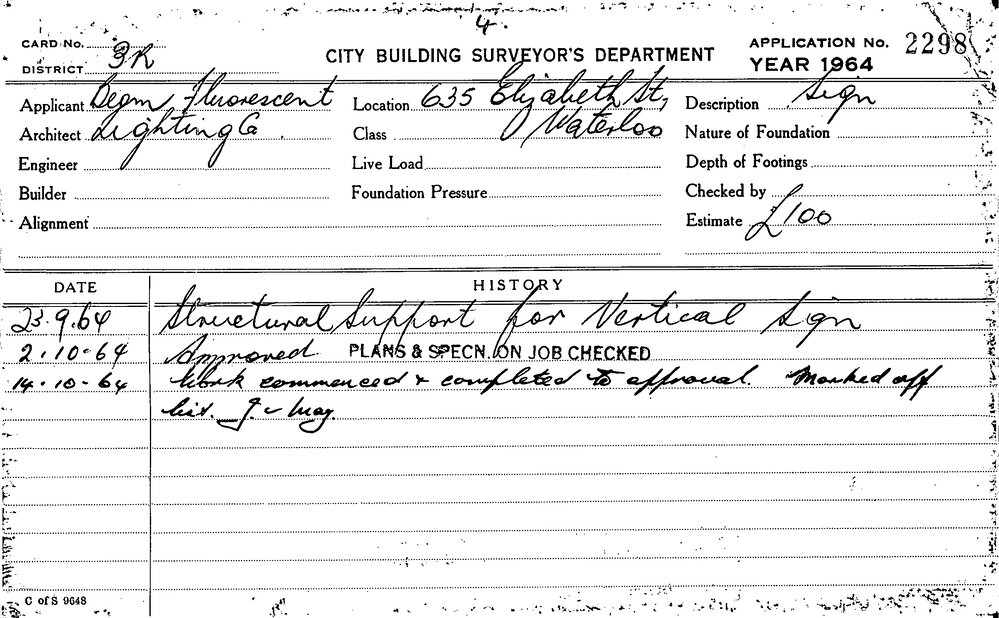 4.
CARD No.
DISTRICT 3R
CITY BUILDING SURVEYOR'S DEPARTMENT
APPLICATION No. 2298
YEAR 1964
Applicant Fluorescent
Architect Lighting Co
Engineer
Builder
Alignment
Location 635 Elizabeth St,
Class Waterloo
Live Load
Foundation Pressure
Description Sign
Nature of Foundation
Depth of Footings
Checked by
Estimate £100
DATE HISTORY
23.9.64 Structural Support for Vertical Sign
2.10.64 Approved PLANS & SPECN. ON JOB CHECKED
14.10.64 Work commenced & completed to approval. Marked off
list.
C of S 9648